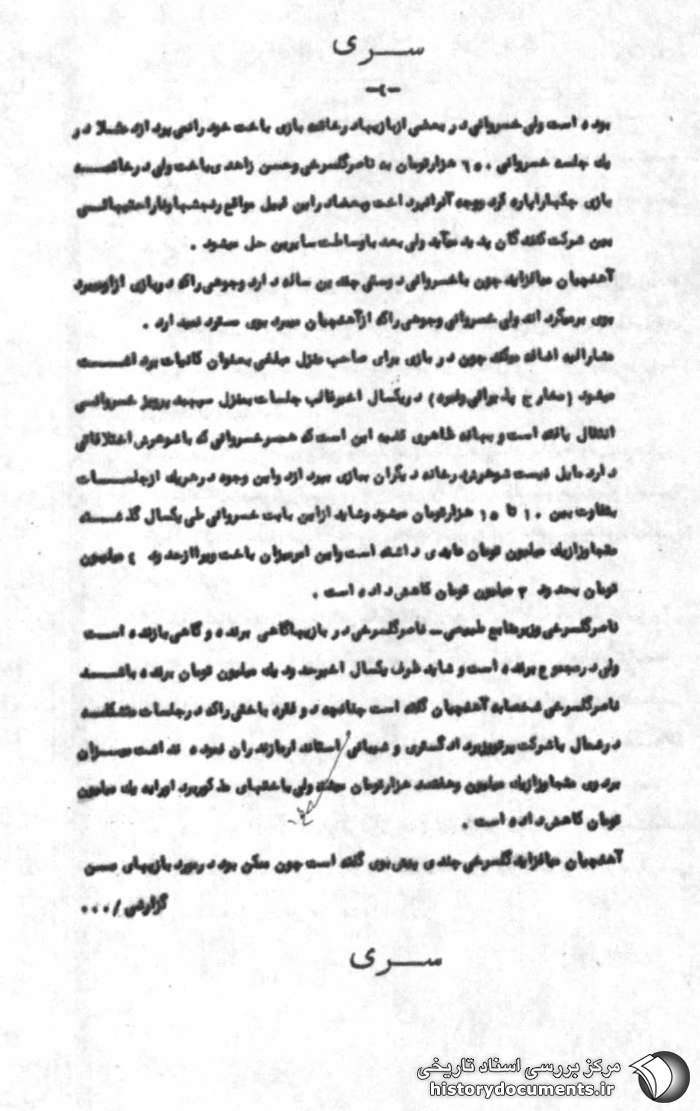 سری
-۴-
بوده است ولی خسروانی در بعضی از بازیها در خاتمه بازی باخت خود را نمی پردازد مثلا در
یک جلسه خسروانی ۶۵۰ هزار تومان به ناصر گلسرخی وحسن زاهدی باخت ولی در خاتمـــه
بازی چکها را پاره کرد ووجه آنرا نپرداخت وبعضا در این قبیل مواقع رنجشها ونا راحتیهائـی
بین شرکت کنندگان پدید میآید ولی بعد با وساطت سایرین حل میشود .
آهنچیان میافزاید چون با خسروانی دوستی چندین ساله دارد وجوهی را که در بازی از او میبرد
بوی برمیگرداند ولی خسروانی وجوهی را که از آهنچیان میبرد بوی مسترد نمیدارد .
مشارالیه اضافه میکند چون در بازی برای صاحب منزل مبلغی بعنوان کانیات برداشـــت
میشود (مخارج پذیرائی وغیره) در یکسال اخیر غالب جلسات بمنزل سپهبد پرویز خسروانـی
انتقال یافته است و بهانه ظاهری قضیه این است که همسر خسروانی که با شوهرش اختلافاتی
دارد مایل نیست شوهرش در خانه دیگران ببازی بپردازد واین وجوه در هریک از جلســـات
متفاوت بین ۱۰ تا ۱۵ هزار تومان میشود وشاید از این بابت خسروانی طی یکسال گذشـــته
متجاوز از یک میلیون تومان عایدی داشته است واین امر میزان باخت ویرا از حدود ۴ میلیون
تومان بحدود ۳ میلیون تومان کاهش داده است .
ناصر گلسرخی وزیر منابع طبیعی – ناصر گلسرخی در بازیها گاهی برنده و گاهی بازنده اســت
ولی در مجموع برنده است و شاید ظرف یکسال اخیر حدود یک میلیون تومان برنده باشـــد
ناصر گلسرخی شخصا به آهنچیان گفته است چنانچه دو فقره باختی را که در جلسات متشکلـه
در شمال با شرکت پرتو ویزدادگستری و شیبانی استاندار مازندران نموده نداشت میــزان
برد وی متجاوز از یک میلیون وهفتصد هزار تومان میشد ولی باختهای مذکور برد او را به یک میلیون
تومان کاهش داده است .
آهنچیان میافزاید گلسرخی چندی پیش بوی گفته است چون ممکن بود در مورد بازیهای بمـن
گزارشی /۰۰۰
سری
مرکز بررسی اسناد تاریخی
historydocuments.ir